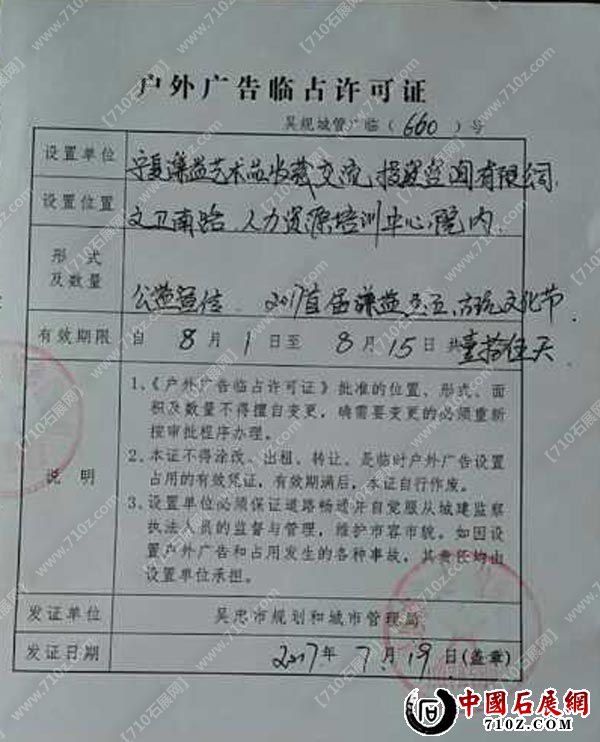 户外广告临占许可证
吴规城管广临（660）号
设置单位 宁夏谦益艺术品收藏交流投资咨询有限公司
设置位置 文卫南路 人力资源培训中心院内
形式及数量 公益宣传 2017首届谦益 文化节
有效期限 自8月1日至8月15日共壹拾伍天
说明
1、《户外广告临占许可证》批准的位置、形式、面
积及数量不得擅自变更，确需要变更的必须重新
按审批程序办理。
2、本证不得涂改、出租、转让、是临时户外广告设置
占用的有效凭证，有效期满后，本证自行作废。
3、设置单位必须保证道路畅通并自觉服从城建监察
执法人员的监督与管理，维护市容市貌。如因设
置户外广告和占用发生的各种事故，其责任均由
设置单位承担。
发证单位 吴忠市规划和城市管理局
发证日期 2017年7月19日(盖章)
中國石展網
710Z.COM